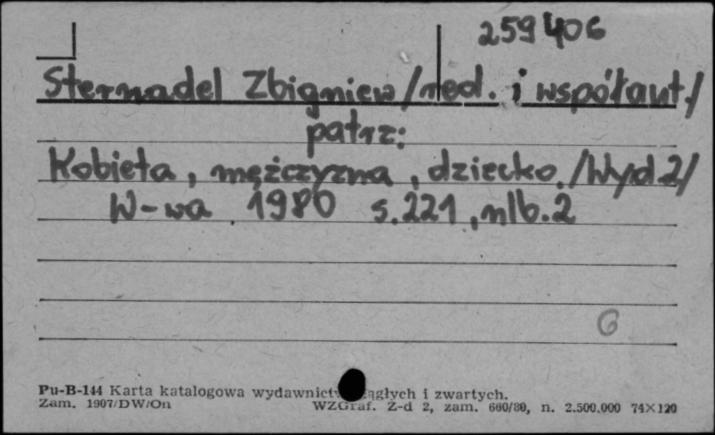 259406
Sternadel Zbigniew /red. i współaut./
patrz:
Kobieta, mężczyzna, dziecko. /Wyd 2/
W-wa 1980 s.221, nlb.2
6
Pu-B-144 Karta katalogowa wydawnictw ciągłych i zwartych.
Zam. 1907/DW/On WZGraf. Z-d 2, zam. 660/80, n. 2.500.000 74×120